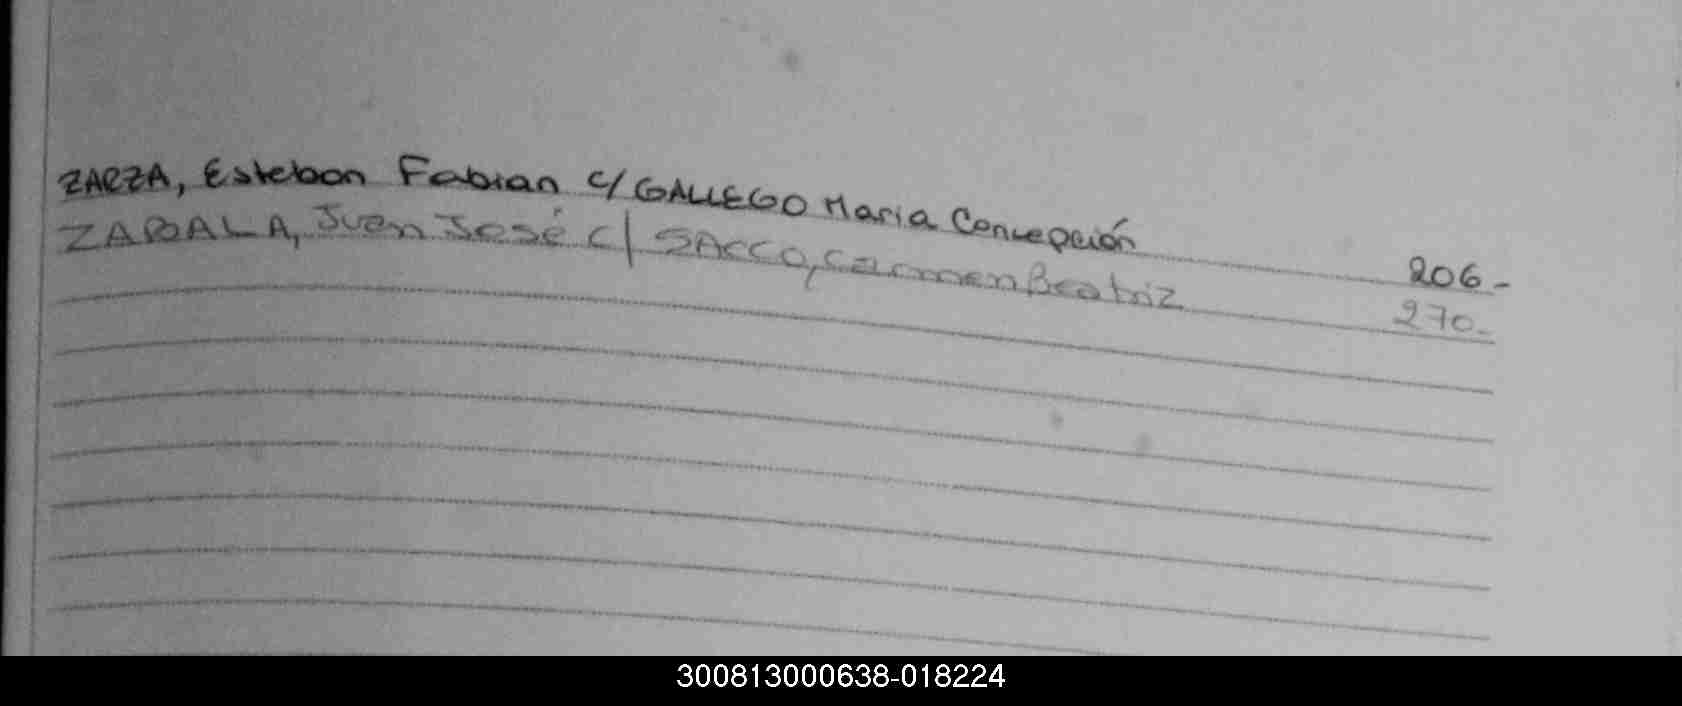 ZARZA, Esteban Fabian c/ GALLEGO Maria Concepción 206-
ZABALA, Juan José c/ SACCO, Carmen Beatriz 270.-
300813000638-018224